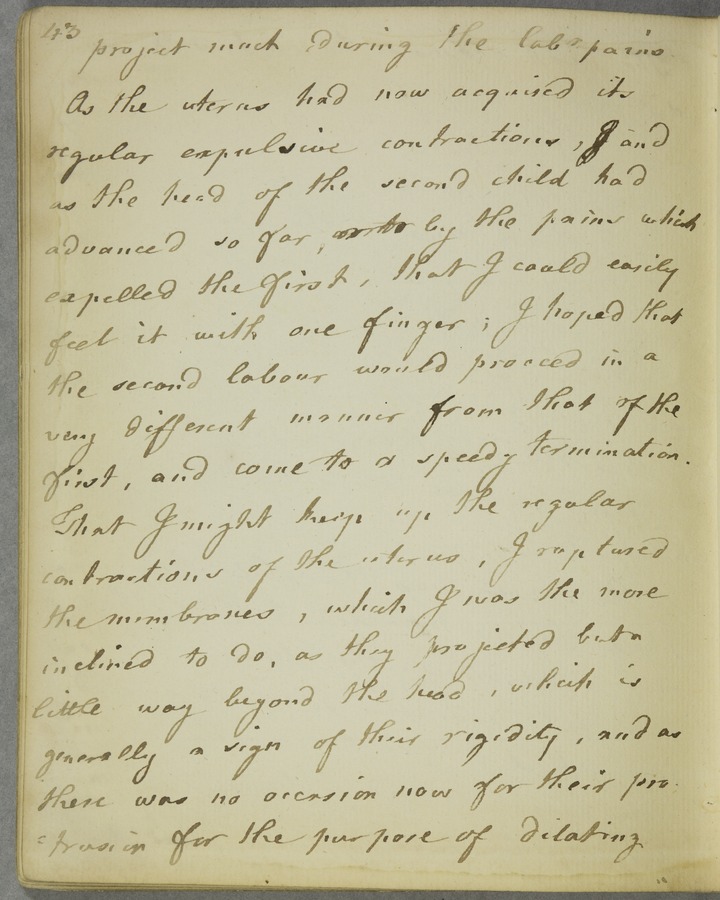 43
project much during the lab.r pains
As the uterus had now acquired its
regular expulsive contractions, and
as the head of the second child had
advanced so far, by the pains which
expelled the first, that I could easily
feel it with one finger; I hoped that
the second labour would proceed in a
very different manner from that of the
first, and come to a speedy termination.
That I might keep up the regular
contractions of the uterus, I ruptured
the membranes, which I was the more
inclined to do, as they projected but a
little way beyond the head, which is
generally a sign of their rigidity, and as
there was no occasion now for their pro-
=trusion for the purpose of dilating